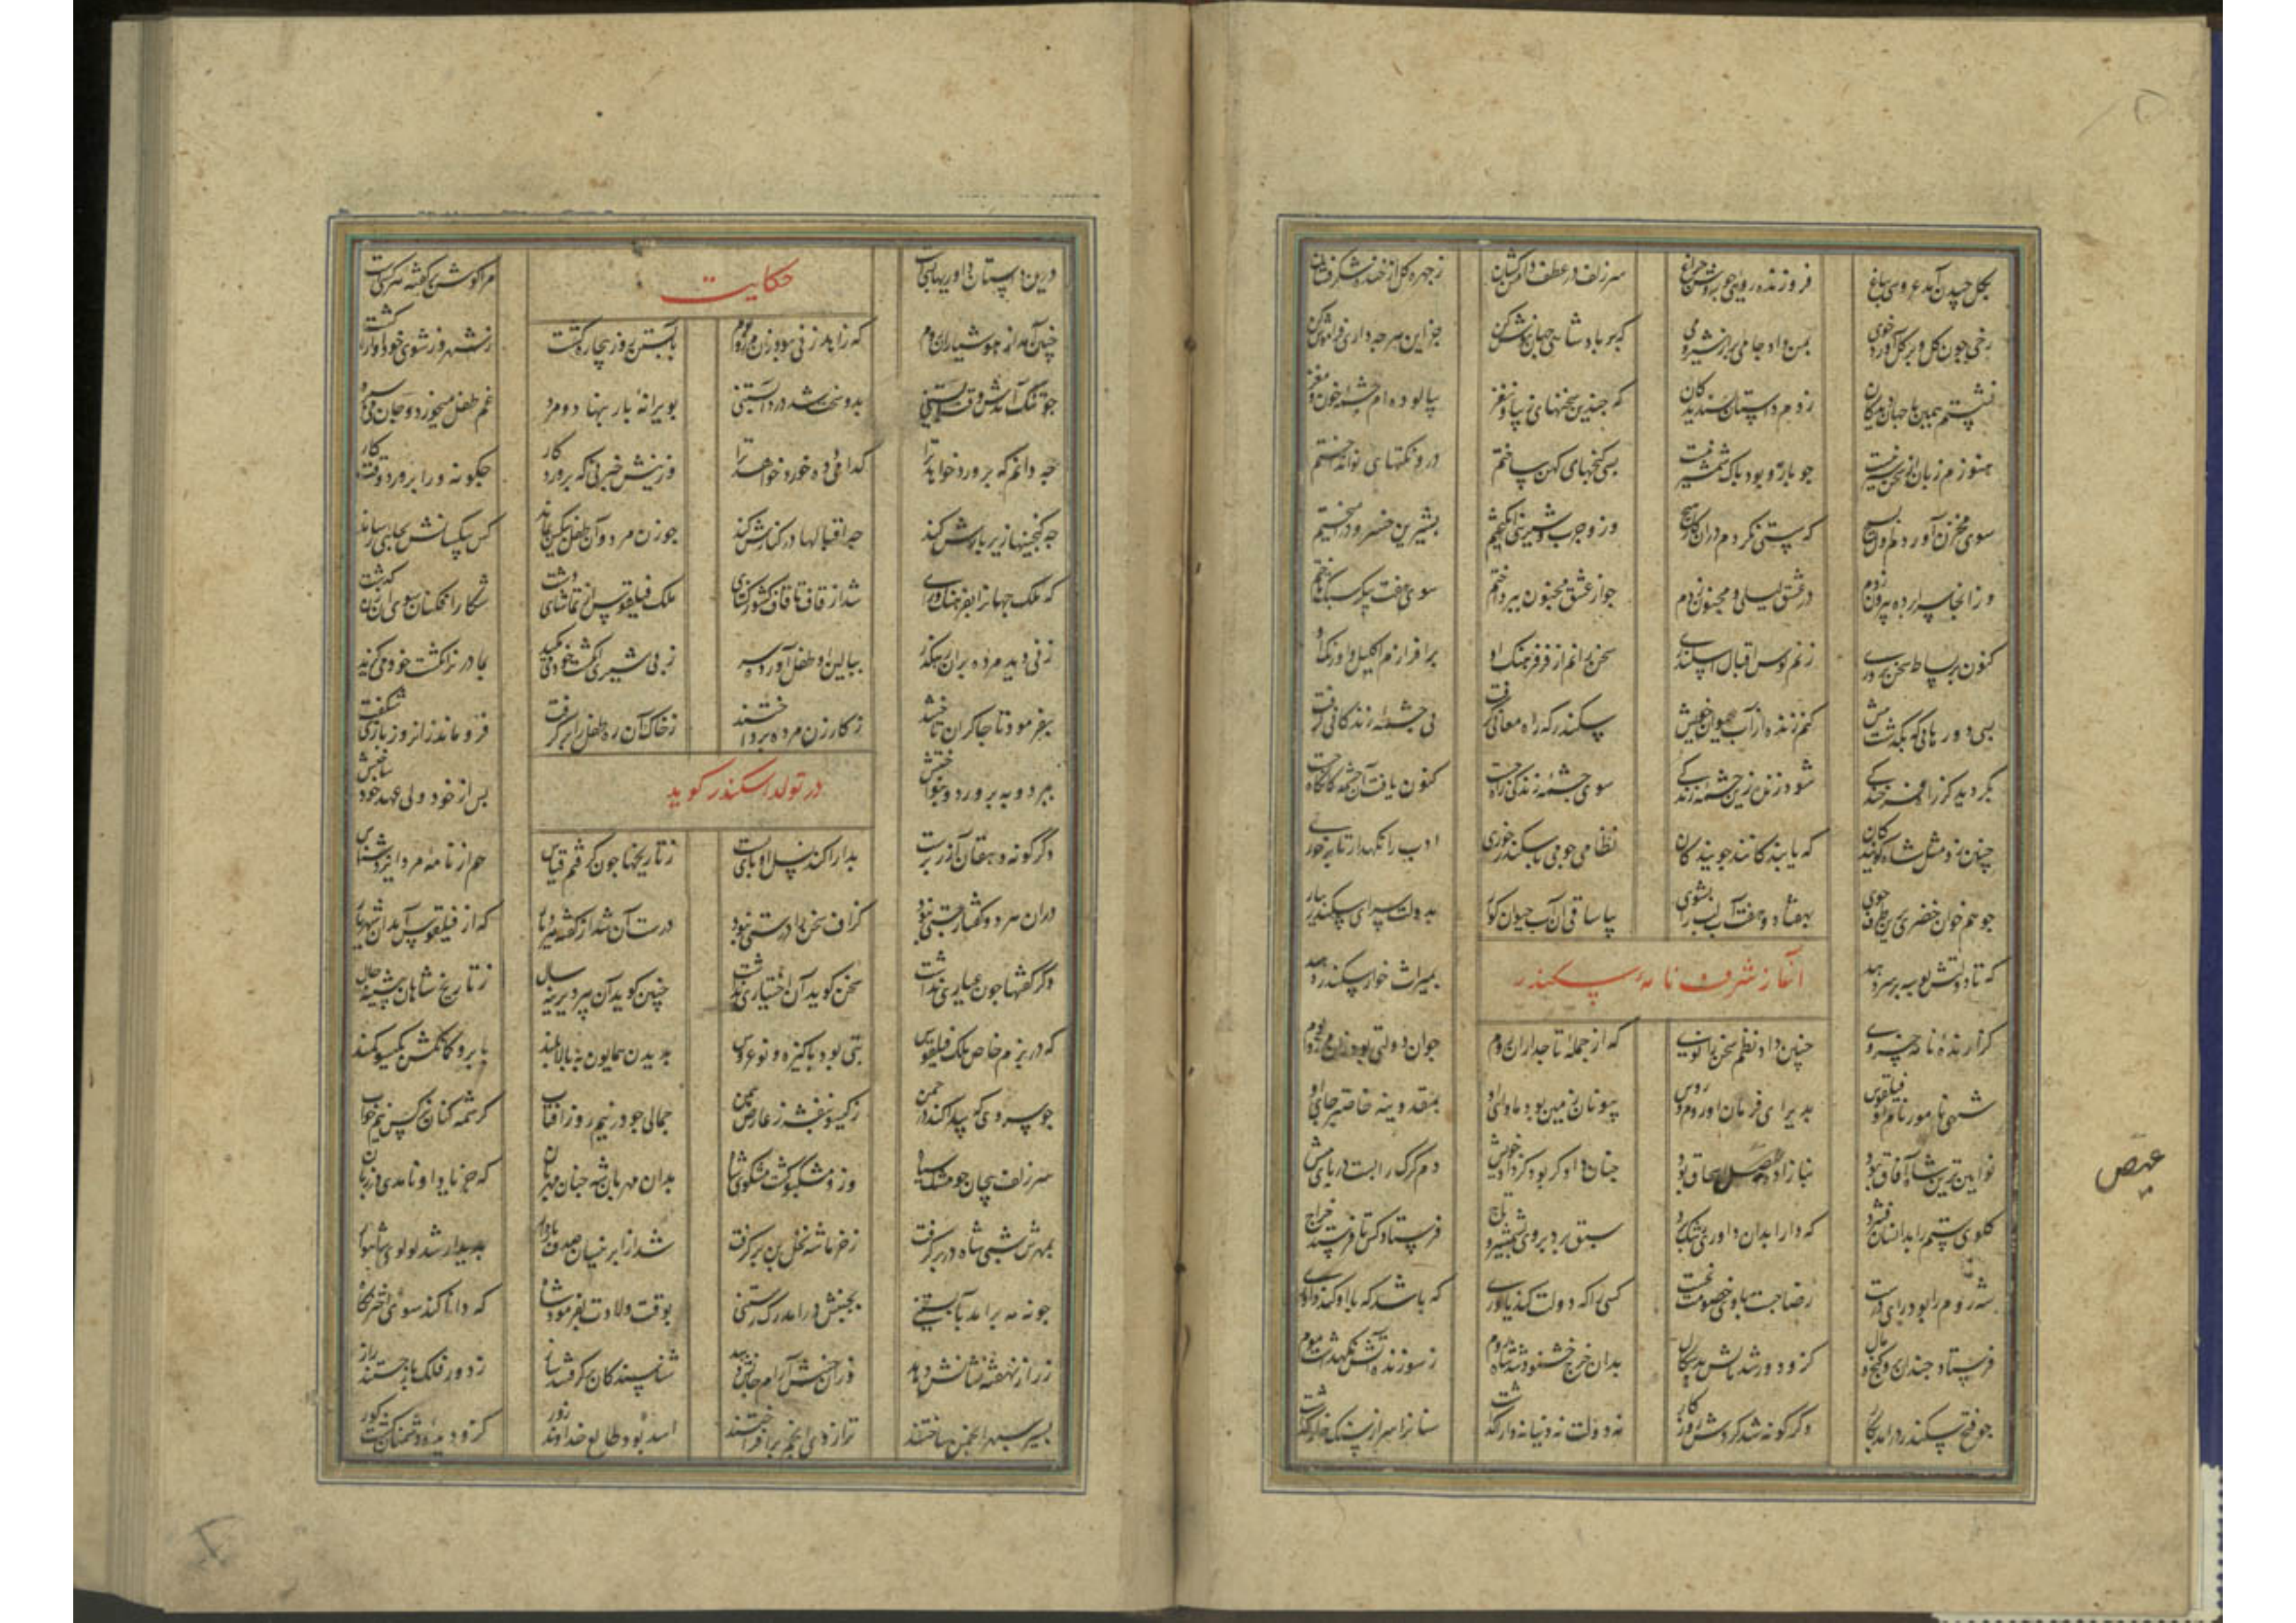 بگل چیدن آمد عروسی بباغ فروزنده روی چو روشن چراغ سر زلف در عطف دامن کشان ز چهره گل از خنده شکر فشان
رخی چون گل و بر گل آورده خوی بمن داد جامی پر از شیر و می که بر یاد شاه جهان نوش کن جز این هر چه داری فراموش کن
نشستم همین با جهان دیدگان زدم داستان پسندیدگان که چندین سخنهای زیبا و نغز پالوده‌ام چشمه خون و مغز
هنوزم زبان از سخن سیر نیست چو بازو بود باک شمشیر نیست بسی گنجهای کهن ساختم درو نکتهای نو انداختم
سوی مخزن آوردم اول بسیج که سستی نکردم دران کار هیچ وزو چرب و شیرینی انگیختم بشیرین و خسرو در آمیختم
وز آنجا سراپرده بیرون زدم در عشق لیلی و مجنون زدم چو از عشق مجنون بپرداختم سوی هفت پیکر سبک تاختم
کنون بر بساط سخن پروری زنم کوس اقبال اسکندری سخن رانم از فر و فرهنگ او بر افرازم اکلیل و اورنگ او
پس از دورهایی که بگذشت پیش کنم زنده از آب حیوان خویش سکندر که راه معانی گرفت پی چشمه زندگانی گرفت
مگر دید کز راه فرخندگی شود زنده زین چشمه زندگی سوی چشمه زندگی راه جست کنون یافت آن چشمه کانگاه جست
چنین زد مثل شاه گویندگان که یابندگانند جویندگان نظامی چو می با سکندر خوری ادب را نگهدار تا بر خوری
چو هم خوان خضری برین طرف جوی بهفتاد و هفت آب لب را بشوی بیا ساقی آن آب حیوان گوار بدولت سرای سکندر سپار
که تا دولتش بوسه بر سر دهد بمیراث خوار سکندر دهد
آغاز شرف نامهٔ سکندر
گزارنده نامه خسروی چنین داد نظم سخن را نوی که از جمله تاجداران روم جوان دولتی بود زان مرز و بوم
شهی نامور نام او فیلقوس پذیرای فرمان او روم و روس بیونان زمین بود ماوای او بمقدونیه خاصتر جای او
نوآیین ترین شاه آفاق بود نیا زادهٔ عیص اسحاق بود عیص چنان دادگر بود کز داد خویش دم گرگ را بست بر پای میش
گلوی ستم را بدانسان فشرد که دارا بدان داوری رشک برد سبق برد بر وی بشمشیر و تاج فرستاد کس تا فرستد خراج
شه روم را بود رای درست رضا جست و با وی خصومت نجست کسی را که دولت کند یاوری که باشد که با او کند داوری
فرستاد چندان بدو گنج و مال کزو دور شد مالش بدسگال بدان خرج خشنود شد شاه روم ز سوزنده آتش نگهداشت موم
چو فتح سکندر درآمد بکار دگرگونه شد گردش روزگار نه دولت نه دنیا نه دارا گذاشت سنان را سر از سنگ خارا گذاشت
درین داستان داوریها بسیست حکایت مرا گوش بر گفته هر کسیست
چنین آمد از هوشیاران روم که زاهد زنی بود ازان مرز و بوم بآبستنی روز بیچاره گشت ز شهر و ز شوی خود آواره گشت
چو تنگ آمدش وقت بار افکنی بدو سخت شد درد آبستنی بویرانه بار بنهاد و مرد غم طفل میخورد و جان می سپرد
چه دانم که پرورد خواهد ترا کدامی دده خورد خواهد ترا وزینش خبر نی که پروردگار چگونه ورا پرورد وقت کار
چه گنجینها زیر بارش کند چه اقبالها در کنارش کند چو زن مرد و آن طفل بیکس بماند کس بیکسانش بجایی رساند
که ملک جهان را بفرهنگ و رای شد از قاف تا قاف کشور گشای ملک فیلقوس از تماشای دشت شکارافکنان سوی آن زن گذشت
زنی دید مرده بران رهگذر ببالین او طفل آورده سر ز بی شیری انگشت خود می مکید بمادر بر انگشت خود می گزید
بفرمود تا چاکران تاختند ز کار زن مرده پرداختند ز خاک آن ره طفل را بر گرفت فرو ماند زان روز بازی شگفت
ببرد و بپرورد و بنواختش پس از خود ولی عهد خود ساختش
در تولد اسکندر گوید
دگرگونه دهقان آذر پرست بدارا کند نسل او بازبست ز تاریخها چون گرفتم قیاس هم از نامه مرد ایزد شناس
دران هر دو گفتار چستی نبود گزاف سخن را درستی نبود درست آن شد از گفته هر دیار که از فیلقوس آمد آن شهریار
دگر گفتها چون عیاری نداشت سخنگوی آن اختیاری نداشت چنین گوید آن پیر دیرینه سال ز تاریخ شاهان پیشینه حال
که در بزم خاص ملک فیلقوس بتی بود پاکیزه و نوعروس بدیدن همایون ببالا بلند بابرو کمانکش بگیسو کمند
چو سروی که پیدا کند در چمن ز گیسو بنفشه ز عارض سمن جمالی چو در نیم روز آفتاب کرشمه کنان نرگس نیم خواب
سر زلف پیچان چو مشک سیاه وزو مشکبو گشته مشکوی شاه بدان مهربان شه چنان مهربان که جز یاد او نامدی بر زبان
بمهرش شبی شاه در بر گرفت ز خرمای شه نخل بن بر گرفت شد از ابر نیسان صدف باردار پدیدار شد لولوی شاهوار
چو نه مه برآمد بآبستنی بجنبش درآمد رگ رستنی بوقت ولادت بفرمود شاه که دانا کند سوی اختر نگاه
ز راز نهفته نشانش دهد وزان جنبش آرام جانش دهد شناسندگان برگرفتند ساز ز دور فلک باز جستند راز
بسیر سپهر انجمن ساختند ترازوی انجم برافراختند اسد بود طالع خداوند زور کزو دیدهٔ دشمنان گشت کور